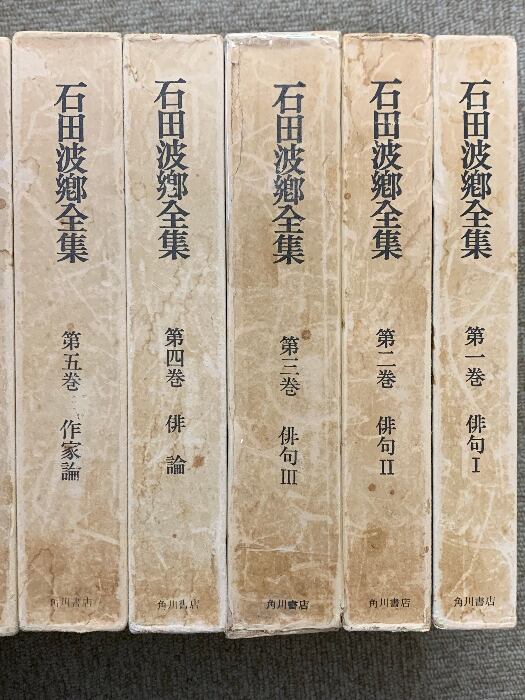 石田波郷全集
第一巻 俳句I
角川書店
石田波郷全集
第二巻 俳句II
角川書店
石田波郷全集
第三巻 俳句III
角川書店
石田波郷全集
第四巻 俳論
角川書店
石田波郷全集
第五巻 作家論
角川書店